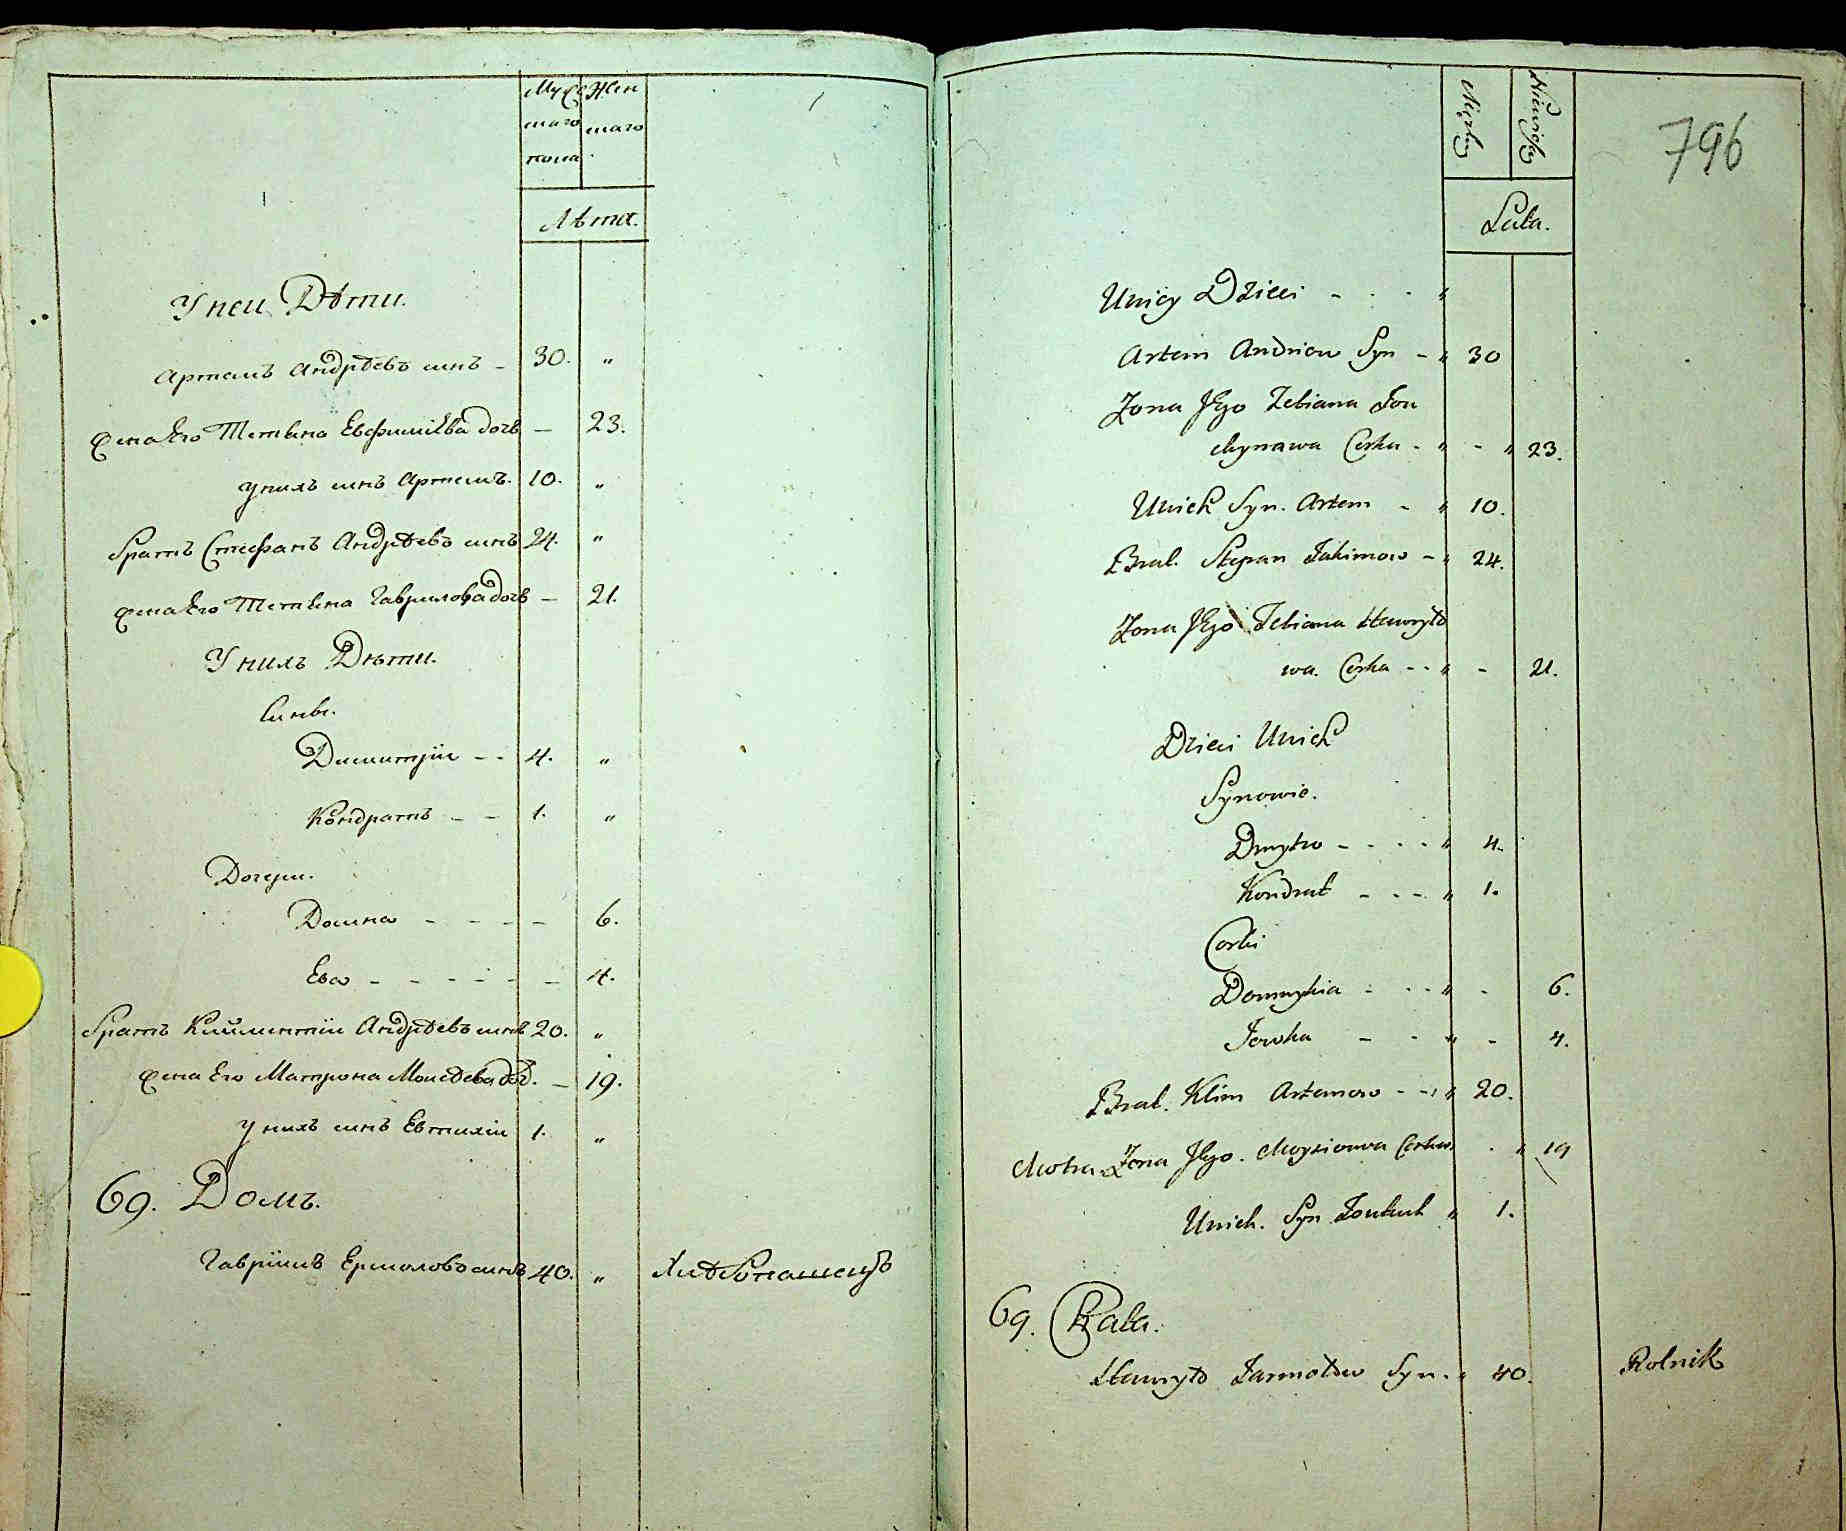 Муже Жен
скаго скаго
пола
Лѣта.
У неи Дѣти.
Артемъ Андрѣевъ синъ - 30. "
жена Его Тетяна Евфиміева дочь - 23.
у нихъ синъ Артемъ. 10. "
братъ Стефанъ Андрѣевъ синъ 24. "
жена Его Тетяна Гаврилова дочь - 21.
У нихъ Дѣти.
Сины.
Димитрій - - 4. "
Кондратъ - - 1. "
Дочери.
Домна - - - - - 6.
Ева - - - - - - 4.
братъ Климентій Андрѣевъ синъ 20. "
жена Его Матрона Моисѣева доч. - 19.
у нихъ синъ Евтихій 1. "
69. Домъ.
Гавріилъ Ермоловъ синъ 40. " Хлѣбопашецъ
796
Męzkiey Niewieskiey
Lata.
Uniey Dzieci - - - "
Artem Andriow Syn - " 30
Zona Jego Tetiana Jou
chymawa Corka - " - " 23.
Unich Syn. Artem - " 10.
Brat. Stepan Jakimow - " 24.
Zona Jego Tetiana Hawryło
wa. Corka - - " - 21.
Dzieci Unich
Synowie.
Dmytro - - - - " 4.
Kondrat - - - " 1.
Corki
Domnykia - - - " - 6.
Jewka - - " - 4.
Brat. Klim Artemow - - " 20.
Motra Zona Jego. Moysiowa Corka. - " 19
Unich. Syn Joutuch " 1.
69. Chata.
Hawryło Jarmołow Syn. " 40. Rolnik